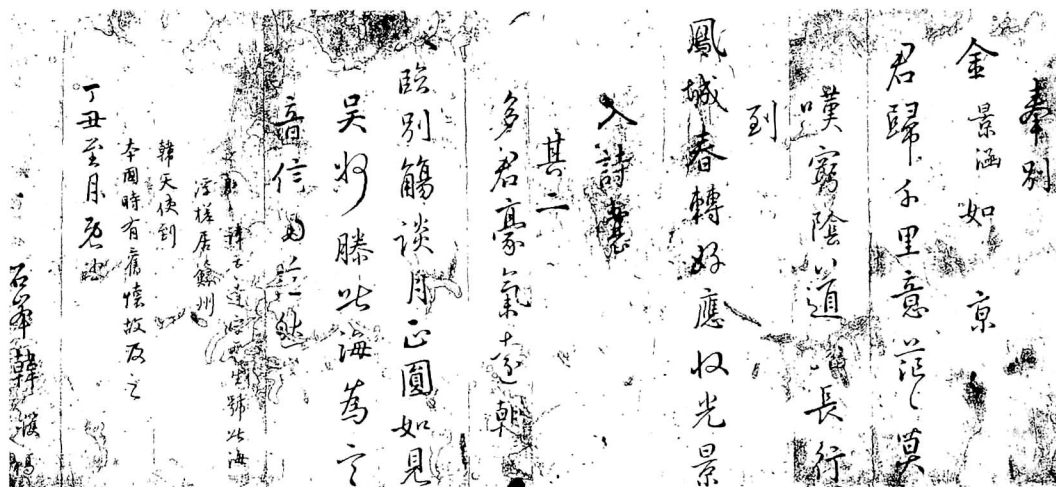 奉別
金景涵如京
君歸千里意茫〻莫
嘆窮陰道路長行
到
鳳城春轉好應收光景
入詩囊
其二
多君豪氣遠朝
臨別觴談月正圓如見
吳 勝此海為言
音信
韓 號此海
浮槎居蘇州
韓天使到
本國時有舊懷故及之
丁丑至月
石峯韓濩